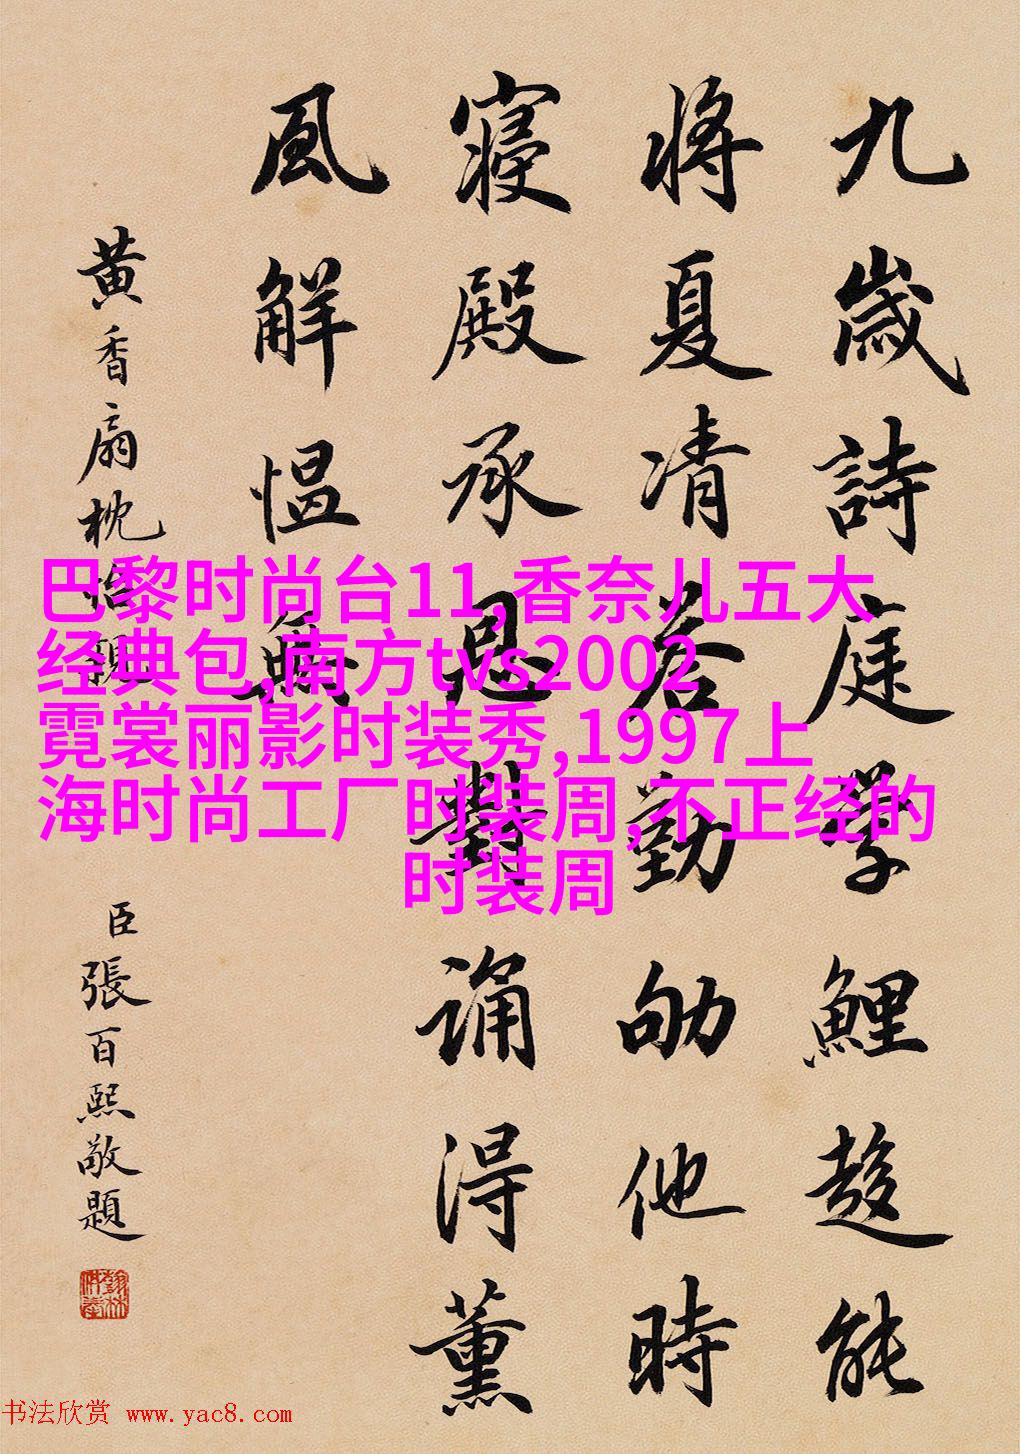 九歲詩庭學鯉趍能
將夏凊荅勤劬他時
寢殿承恩對誦得薰
風解愠無
黄香扇枕怡親
臣張百熙敬題
巴黎时尚台11,香奈儿五大
经典包,南方tvs2002
霓裳丽影时装秀,1997上
海时尚工厂时装周,不正经的
时装周
书法欣赏 www.yac8.com